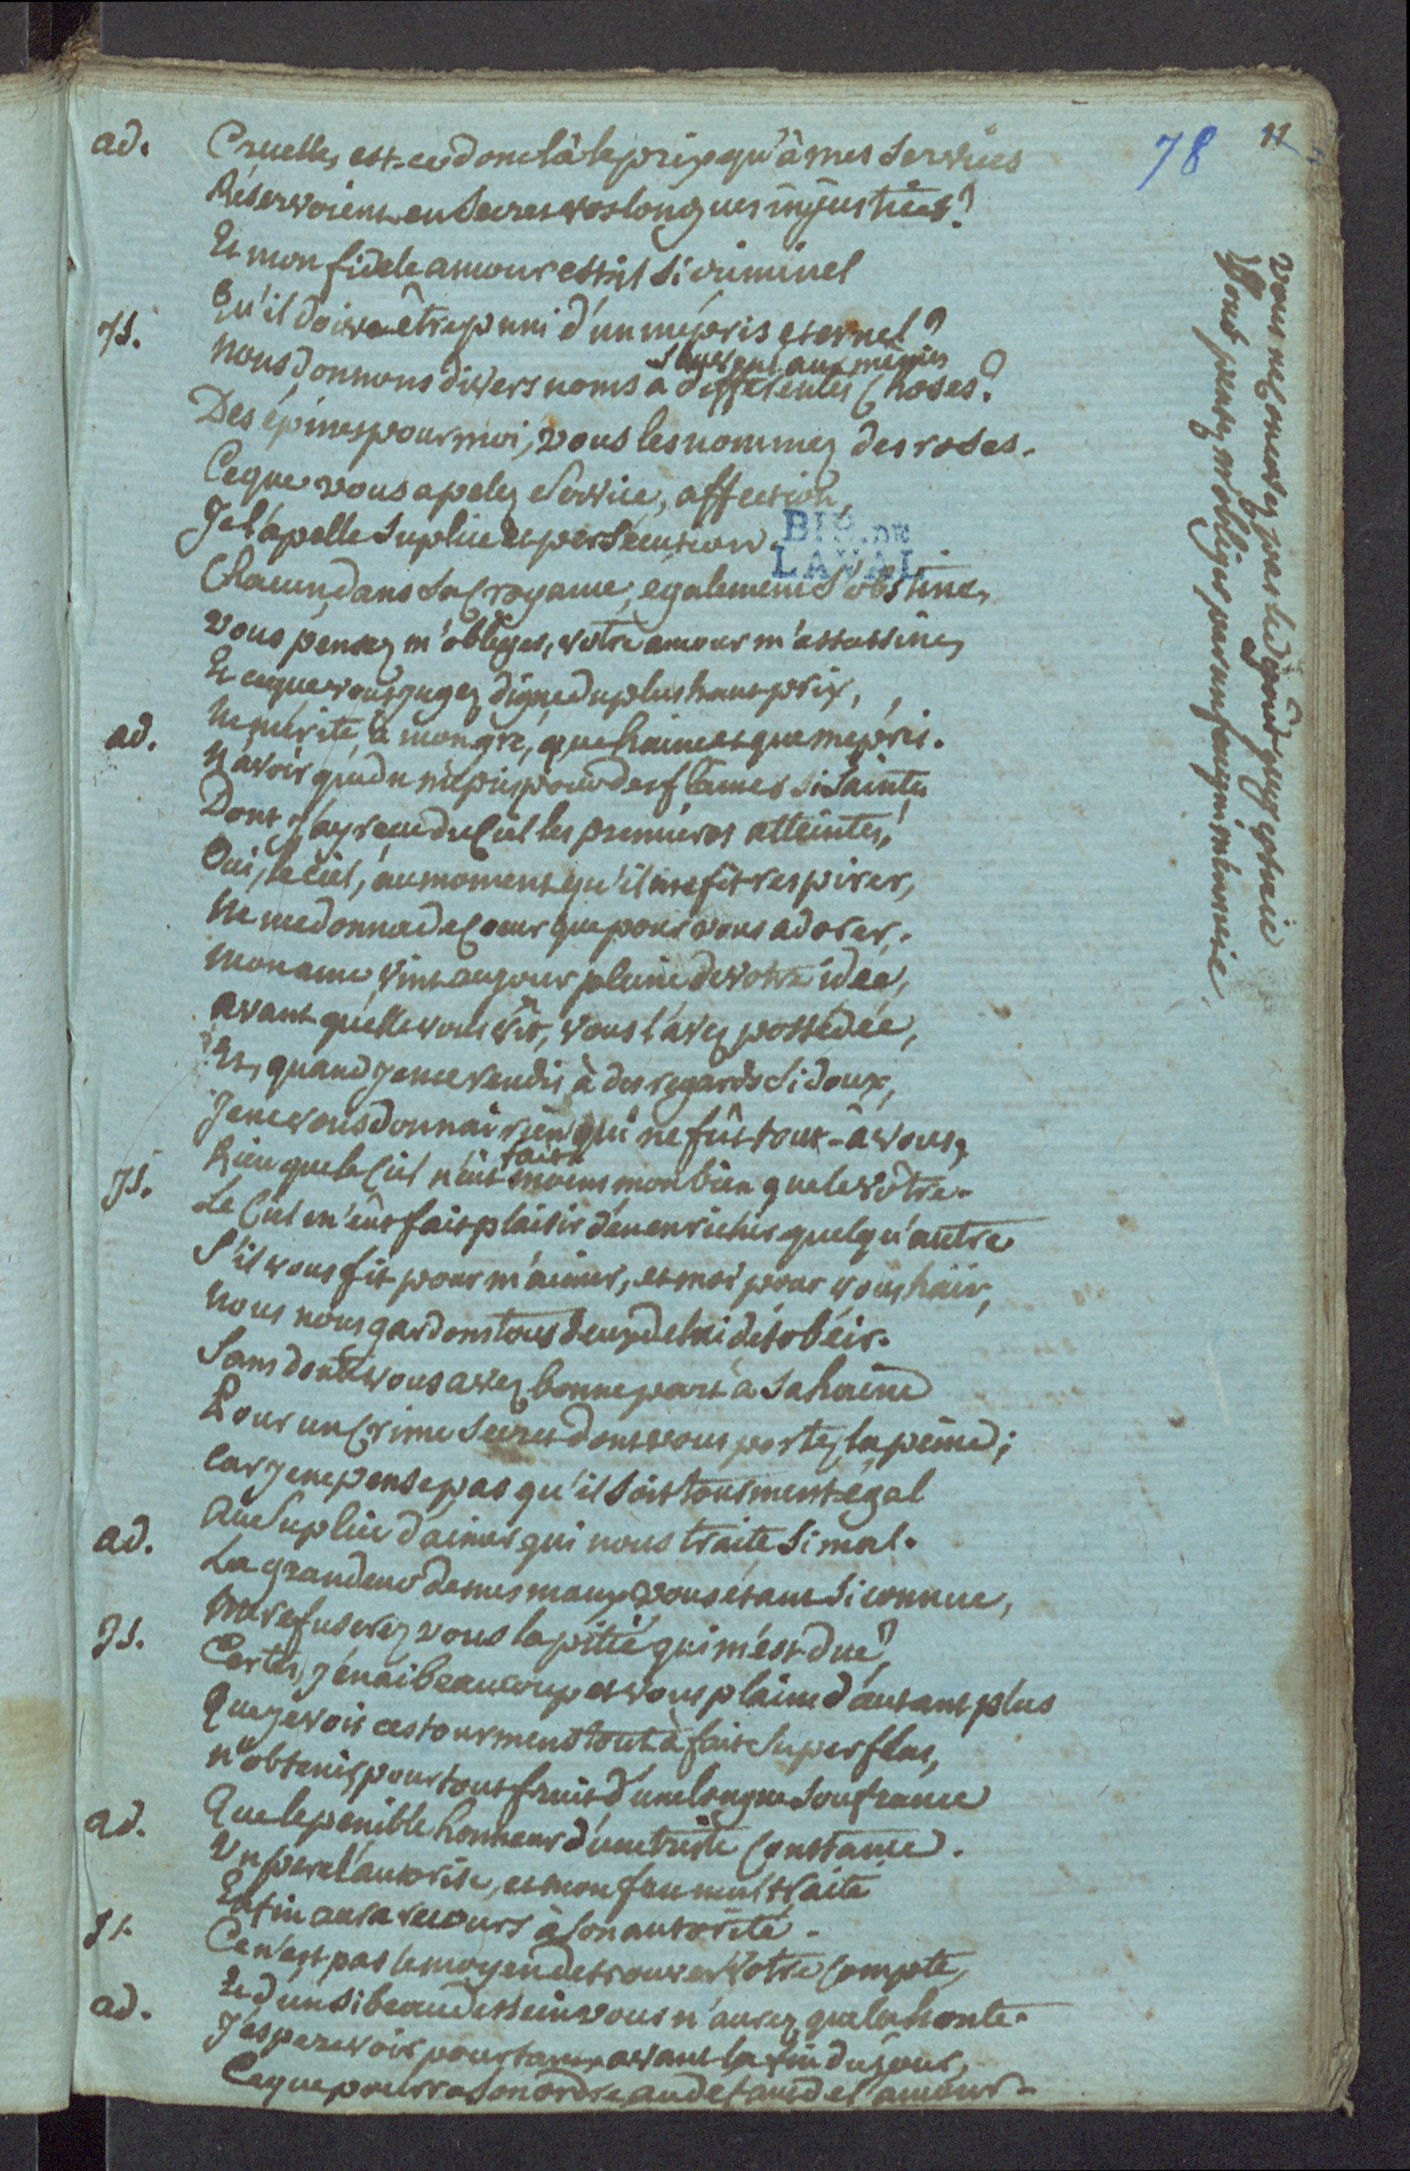 78
11
ad. Cruelle, est-ce donc là le prix qu'à mes services
Réservoient en secret vos longues injustices?
Et mon fidele amour est-il si criminel
Qu'il doive être puni d'un mépris eternel?
Js. Nous donnons divers noms à différentes choses?
souvent aux mêmes
Des épines pour moi, vous les nommez des roses.
Ce que vous apelez service, affection,
Je l'apelle suplice et persécution.
BIB. DE
LAVAL
Chacun, dans sa croyance, egalement s'obstine,
vous pensez m'obliger, votre amour m'assassine,
Et ce que vous jugez digne du plus haut prix,
Ne mérite, à mon gré, que haine et que mépris.
ad. N'avoir que du mépris pour des flames si saintes
Dont j'ay reçu du Ciel les premières atteintes!
Oui, le ciel, au moment qu'il me fit respirer,
Ne me donna de coeur que pour vous adorer.
Mon ame vint au jour pleine de votre idée,
avant qu'elle vous vît, vous l'avez possédée,
Et, quand je me rendis à des regards si doux,
Je ne vous donnai rien qui ne fût tout-à vous,
Rien que le Ciel n'eût moins mon bien que le vôtre.
fait
Js. Le Ciel m'eût fait plaisir d'en enrichir quelqu'autre
S'il vous fit pour m'aimer, et moi pour vous haïr,
Nous nous gardons tous deux de lui désobéir.
Sans doute vous avez bonne part à sa haine
Pour un Crime secret dont vous portez la peine;
car je ne pense pas qu'il soit tourment égal
Au suplice d'aimer qui nous traite si mal.
ad. La grandeur de mes maux vous étant si connue,
Me refuserez vous la pitié qui m'est due?
Js. Certes, j'en ai beaucoup et vous plains d'autant plus
Que je vois ces tourmens tout à fait superflus,
N'obtenir pour tout fruit d'une longue soufrance
Que le penible honneur d'une triste constance.
ad. Un pere l'autorise, et mon feu maltraité
Enfin aura recours à son autorité.
Js. Ce n'est pas le moyen de trouver votre compte,
Et d'un si beau dessein vous n'aurez que la honte.
ad. J'espere voir pourtant avant la fin du jour,
Ce que pourra son ordre au défaut de l'amour.